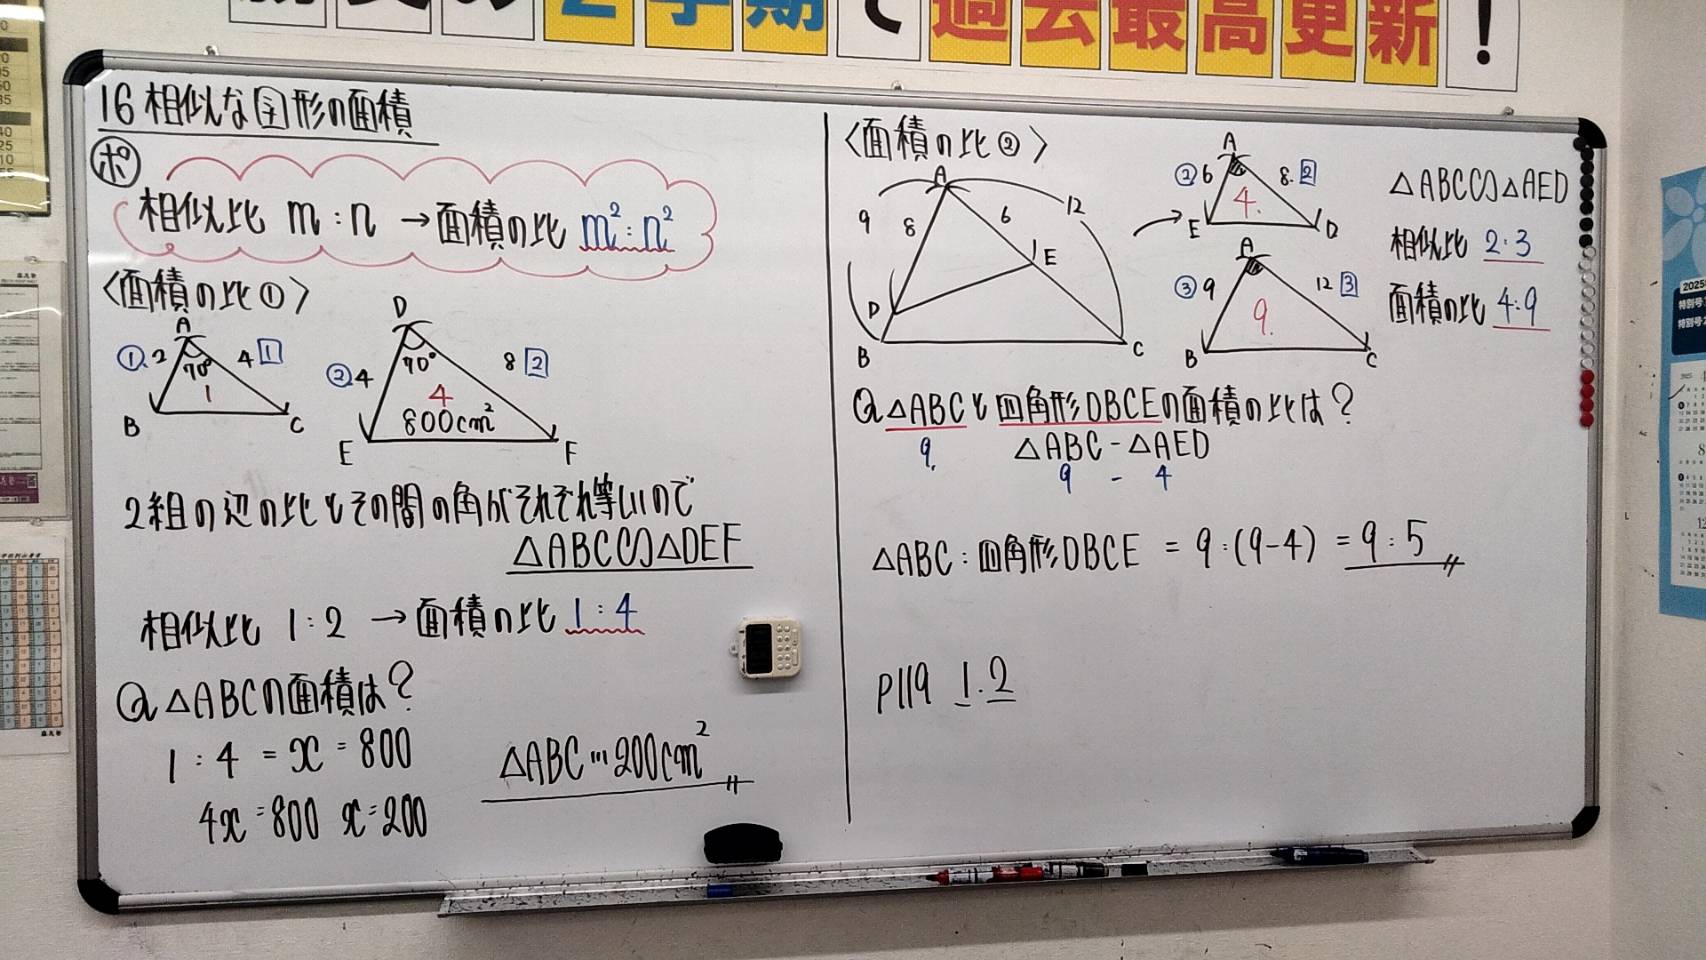 2学期で過去最高更新!
16 相似な図形の面積
ポ
相似比 m:n → 面積の比 m²:n²
〈面積の比①〉
A
① 2
4 1
70°
1
B
C
D
② 4
8 2
70°
4
800cm²
E
F
2組の辺の比とその間の角がそれぞれ等しいので
△ABC∽△DEF
相似比 1:2 → 面積の比 1:4
Q △ABCの面積は?
1:4=x=800
4x=800 x=200
△ABC…200cm²
〈面積の比②〉
A
9
8
6
12
E
D
B
C
A
② 6
8. 2
4.
E
D
A
③ 9
12 3
9.
B
C
△ABC∽△AED
相似比 2:3
面積の比 4:9
Q △ABCと四角形DBCEの面積の比は?
9. △ABC-△AED
9 - 4
△ABC:四角形DBCE = 9:(9-4) = 9:5
P119 1.2
2025